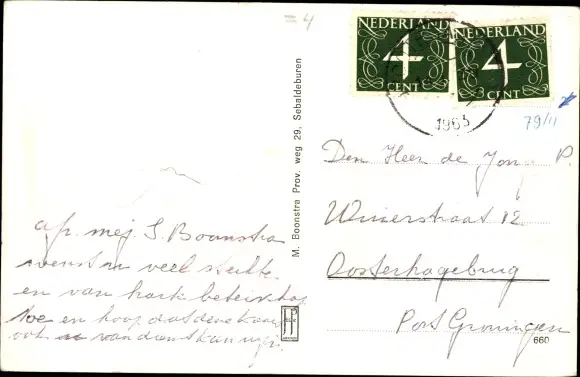 4
NEDERLAND
4
CENT
NEDERLAND
4
CENT
1963
79/11
M. Boonstra Prov. weg 29, Sebaldeburen
Den Heer de Jong P.
Winterstraat 12
Oosterhogebrug
Post Groningen
afz. mej. S. Boonstra
wenst u veel sterkte
en van harte beterschap
toe en hoop dat deze kaart
ook van dienst kan
660